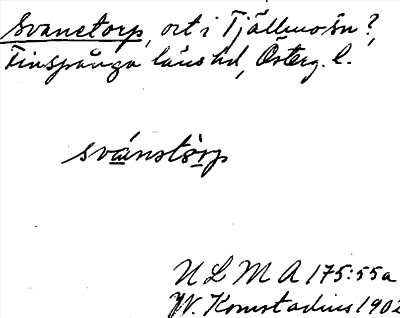 Svanetorp, ort i Tjällmo sn?,
Finspånga läns hd, Österg. l.
svánstòrp
ULMA 175:55a
W. Komstadius 1902